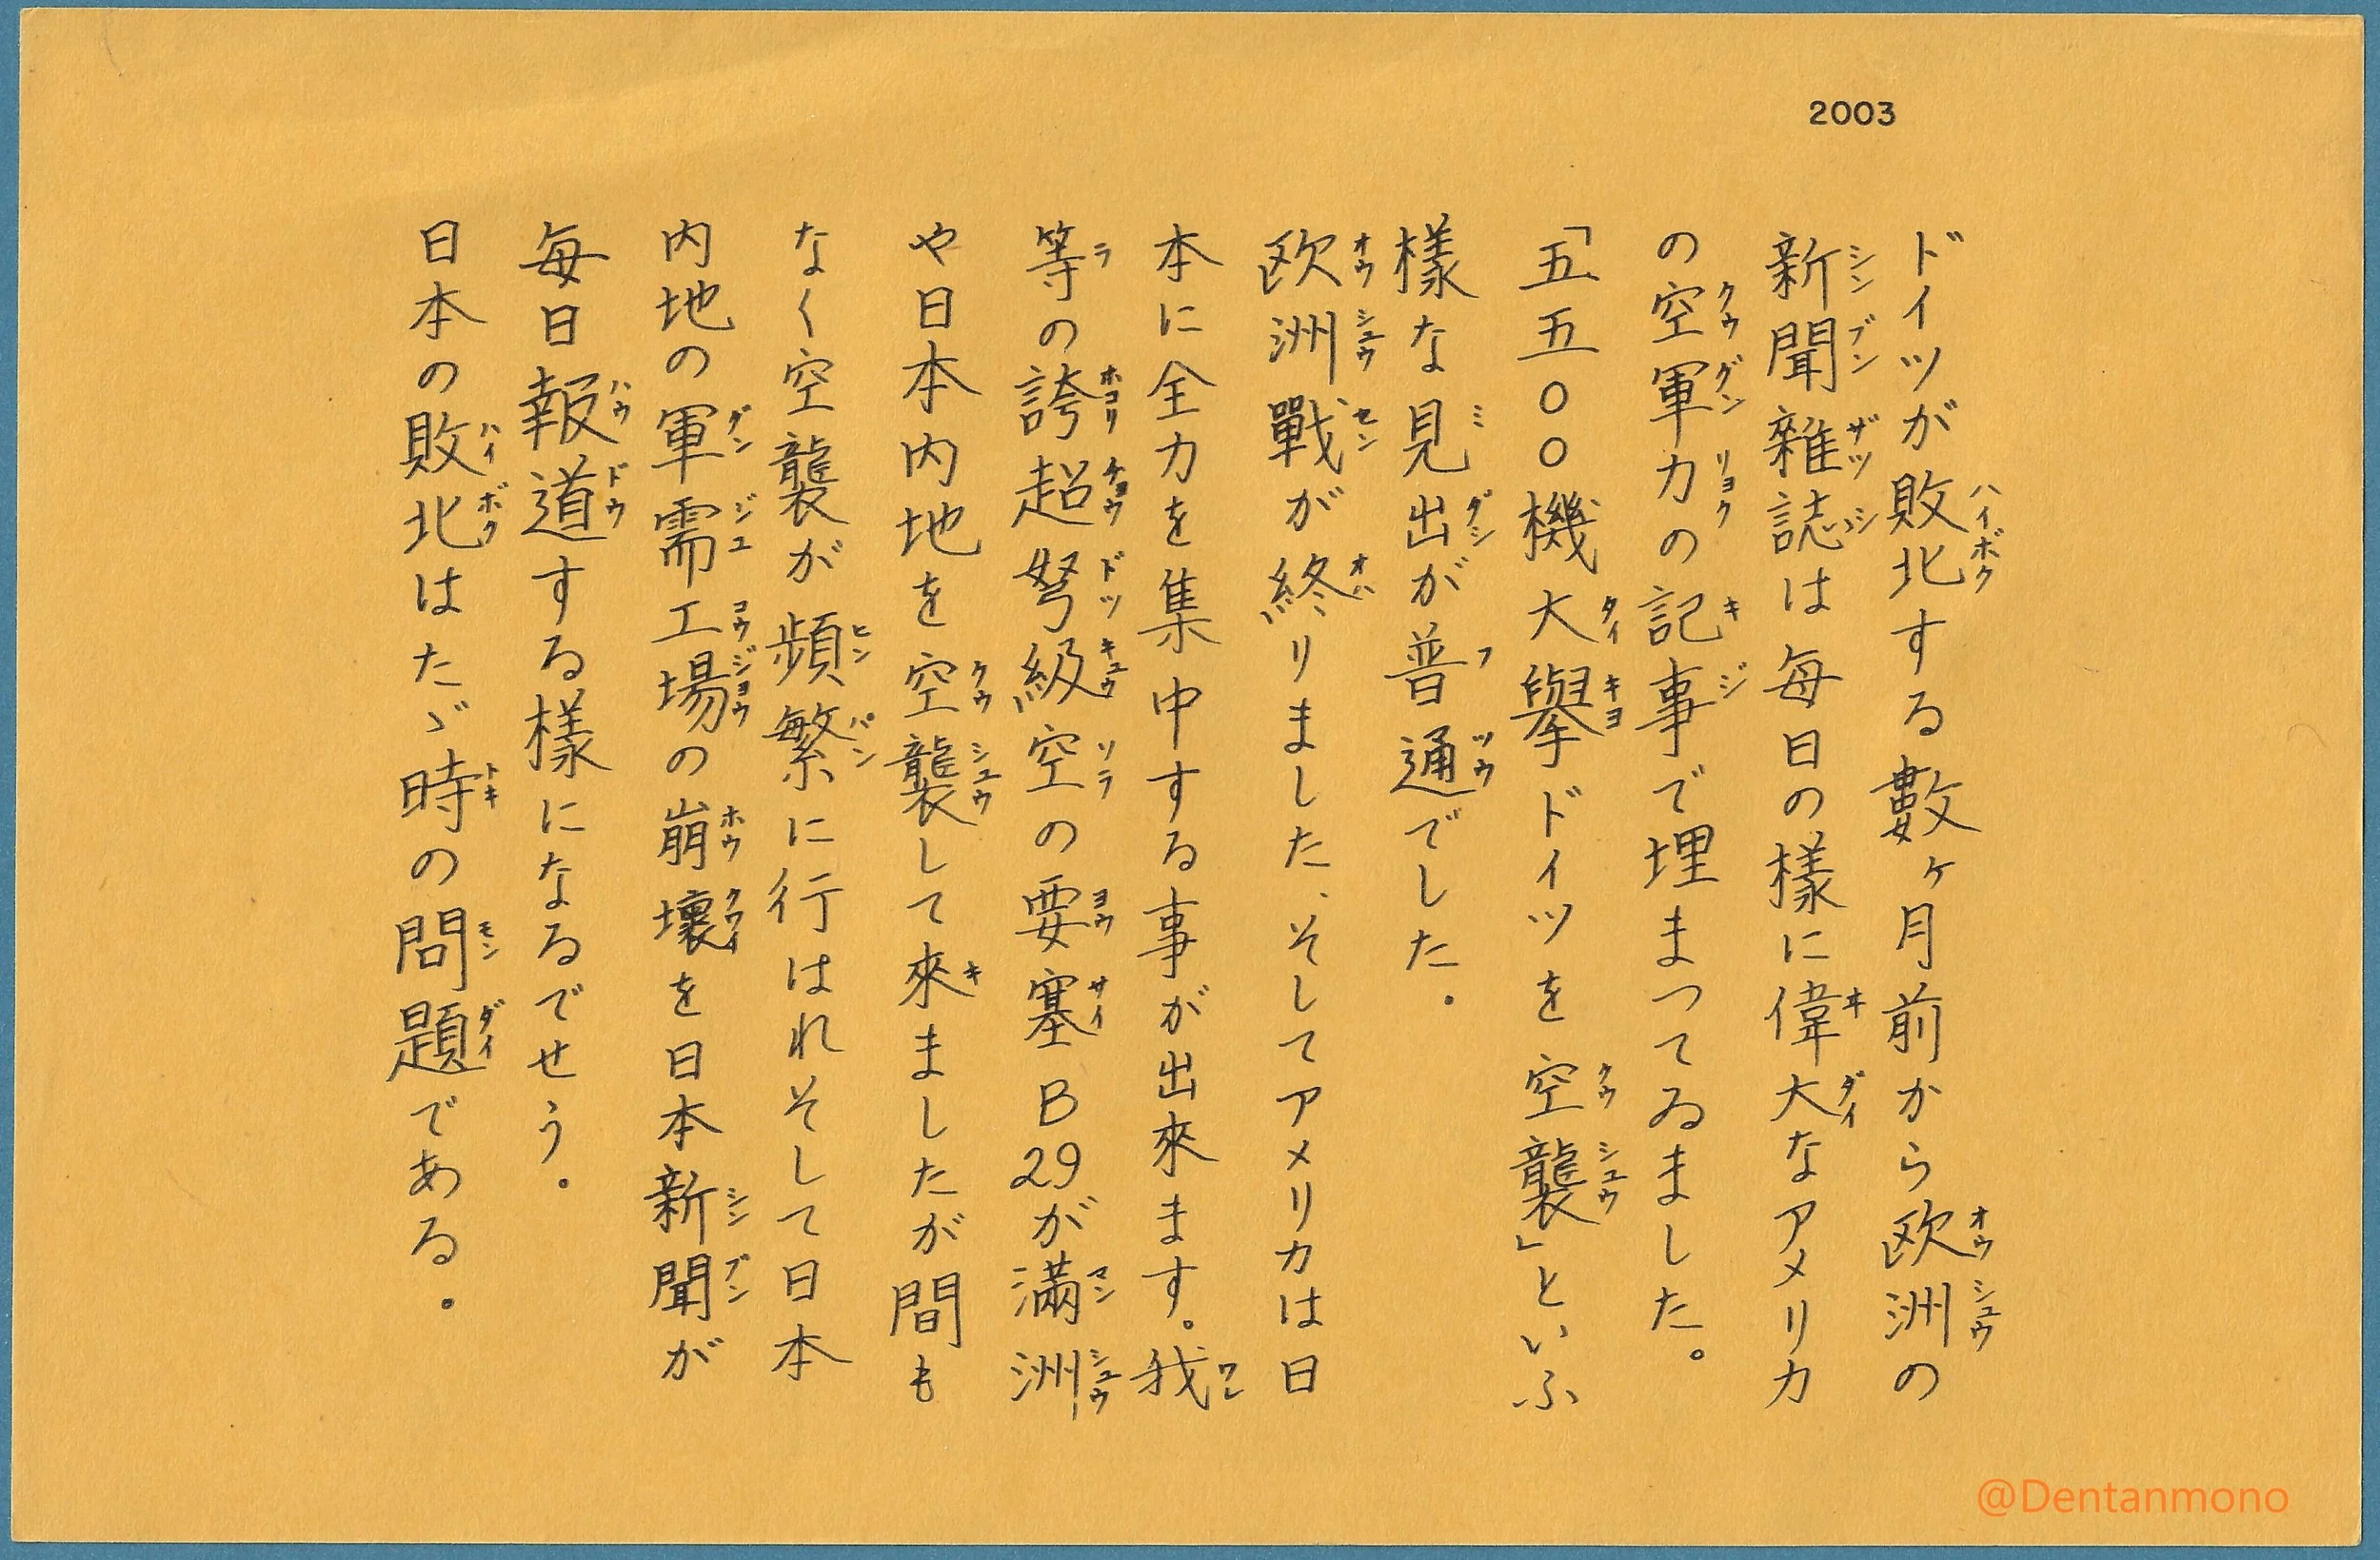 2003
ドイツが敗北する數ヶ月前から欧洲の
新聞雜誌は毎日の樣に偉大なアメリカ
の空軍力の記事で埋まつてゐました。
「五五〇〇機大擧ドイツを空襲」といふ
樣な見出が普通でした。
欧洲戰が終りました、そしてアメリカは日
本に全力を集中する事が出來ます。我
等の誇超弩級空の要塞B29が滿洲
や日本内地を空襲して來ましたが間も
なく空襲が頻繁に行はれそして日本
内地の軍需工場の崩壞を日本新聞が
毎日報道する樣になるでせう。
日本の敗北はたゞ時の問題である。
@Dentanmono